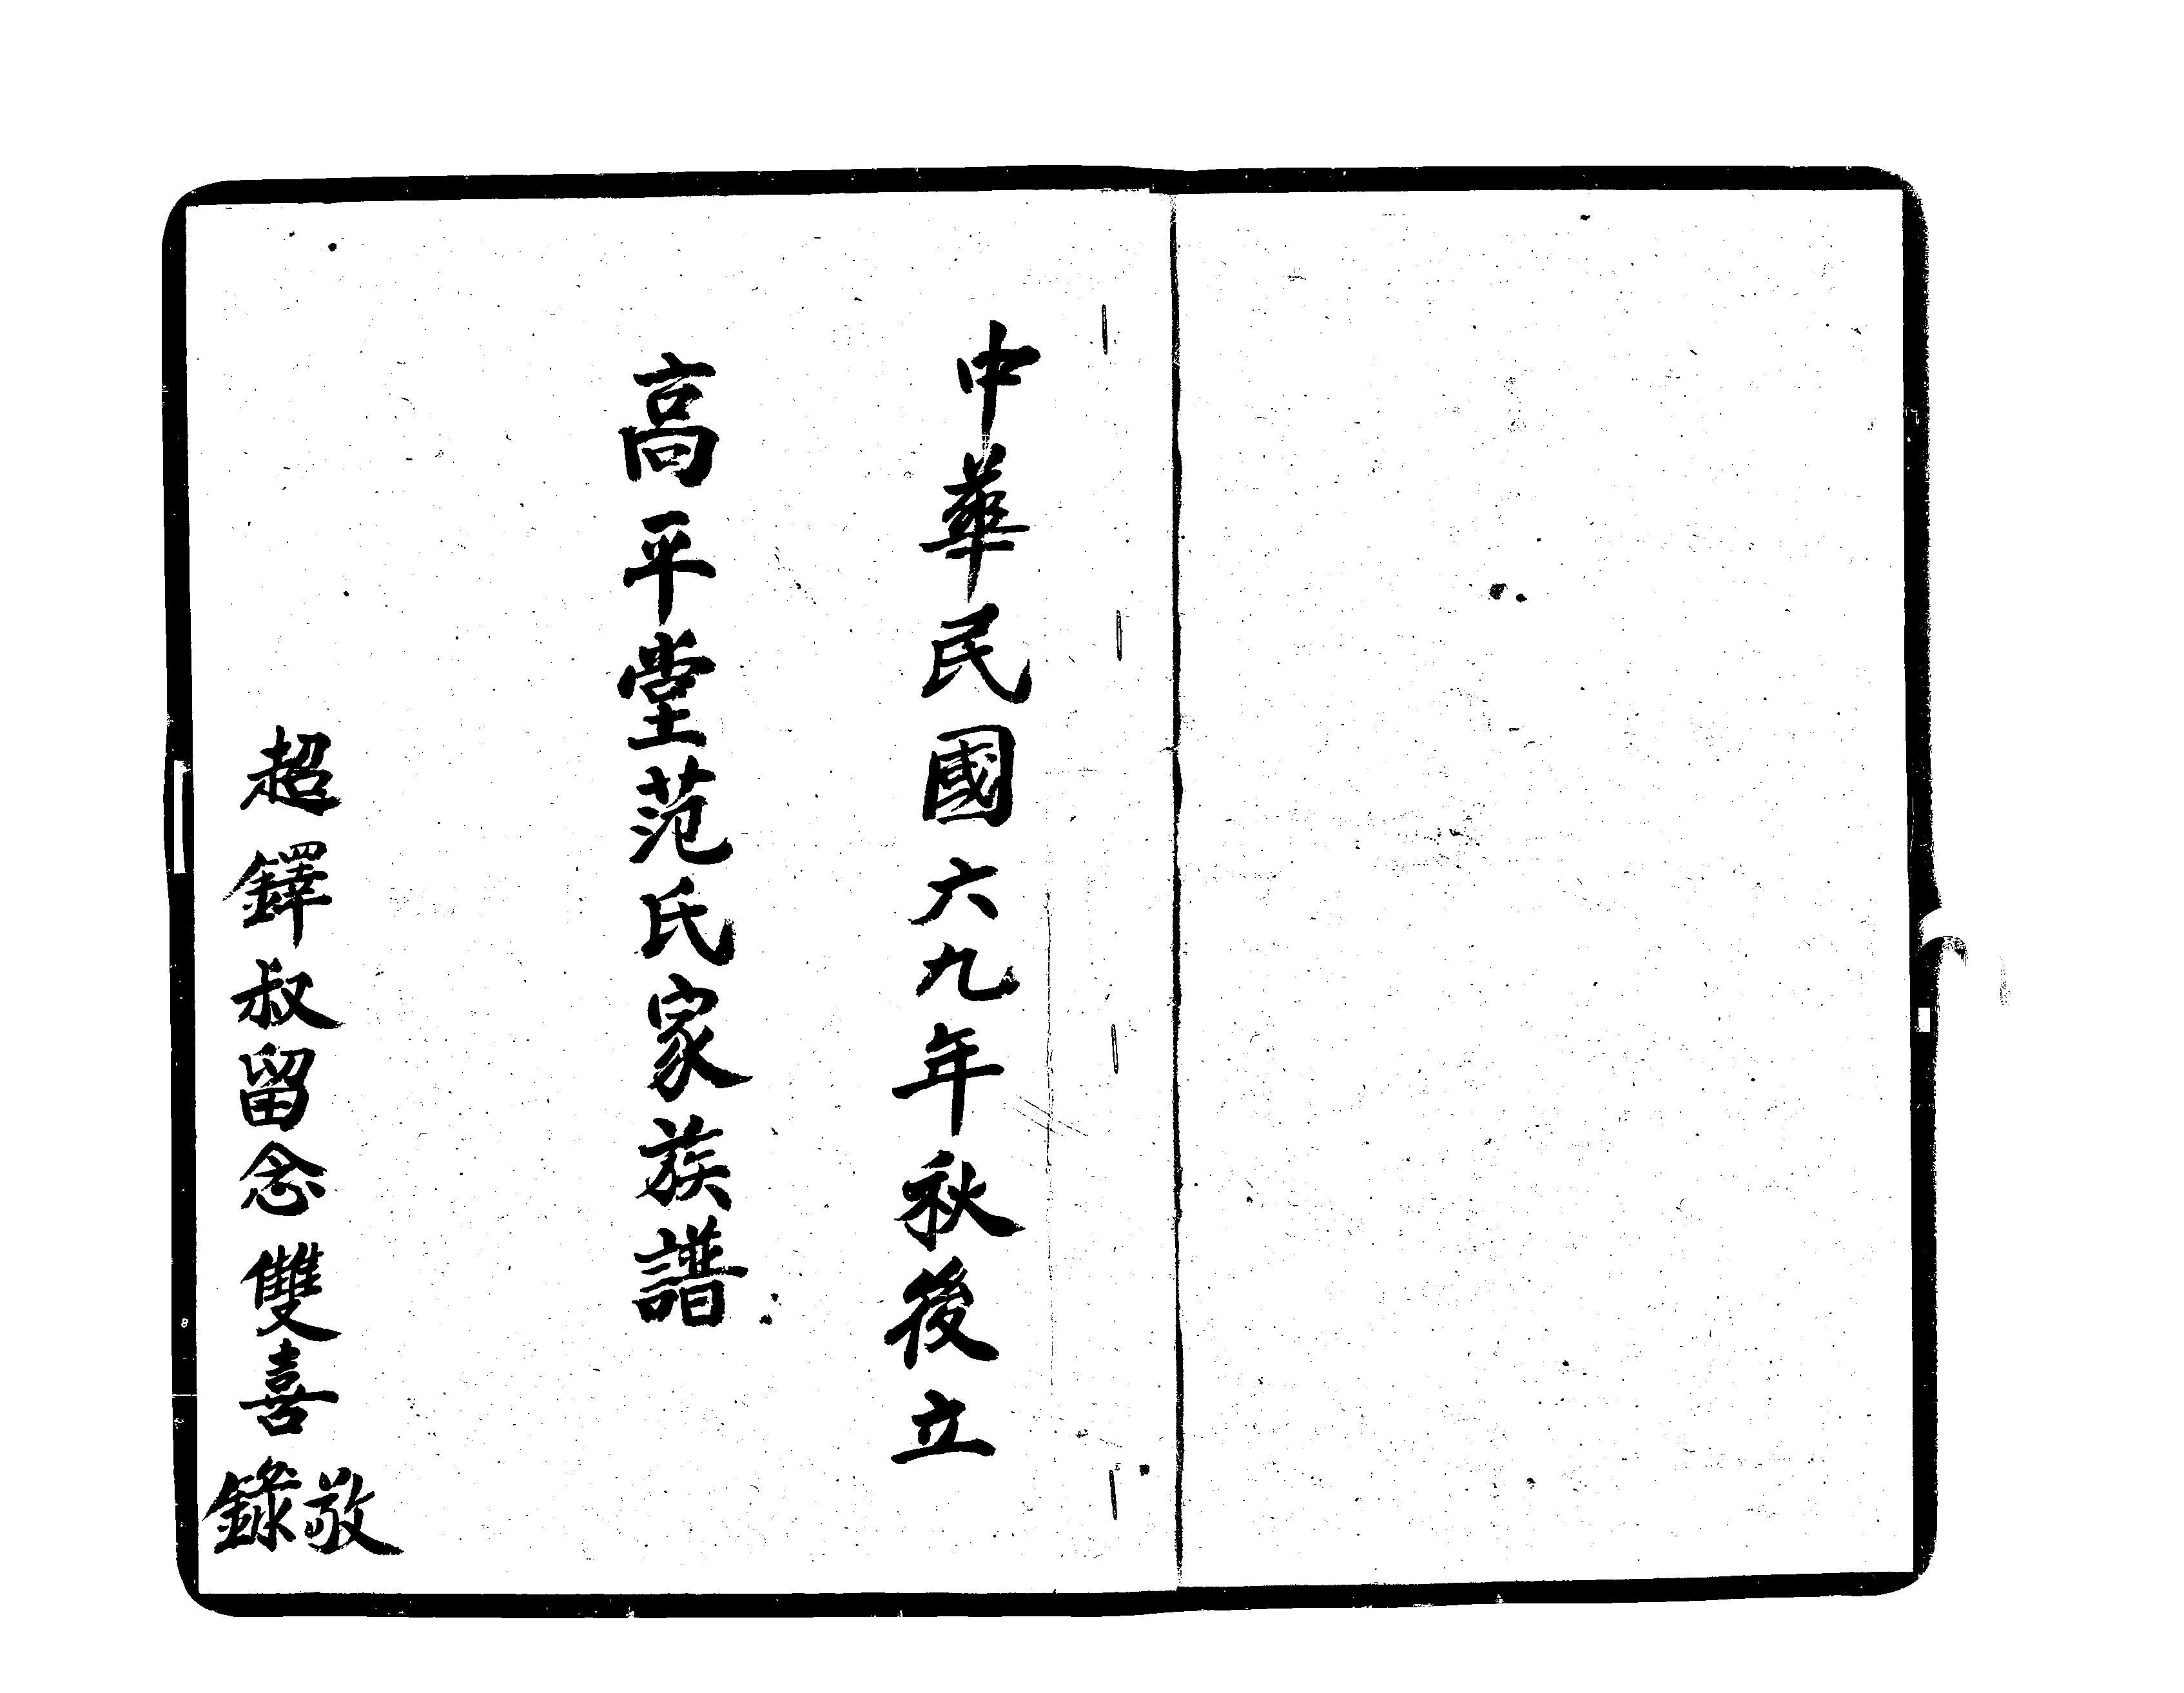 中華民國六九年秋後立
高平堂范氏家族譜
超鐸叔留念 雙喜敬錄